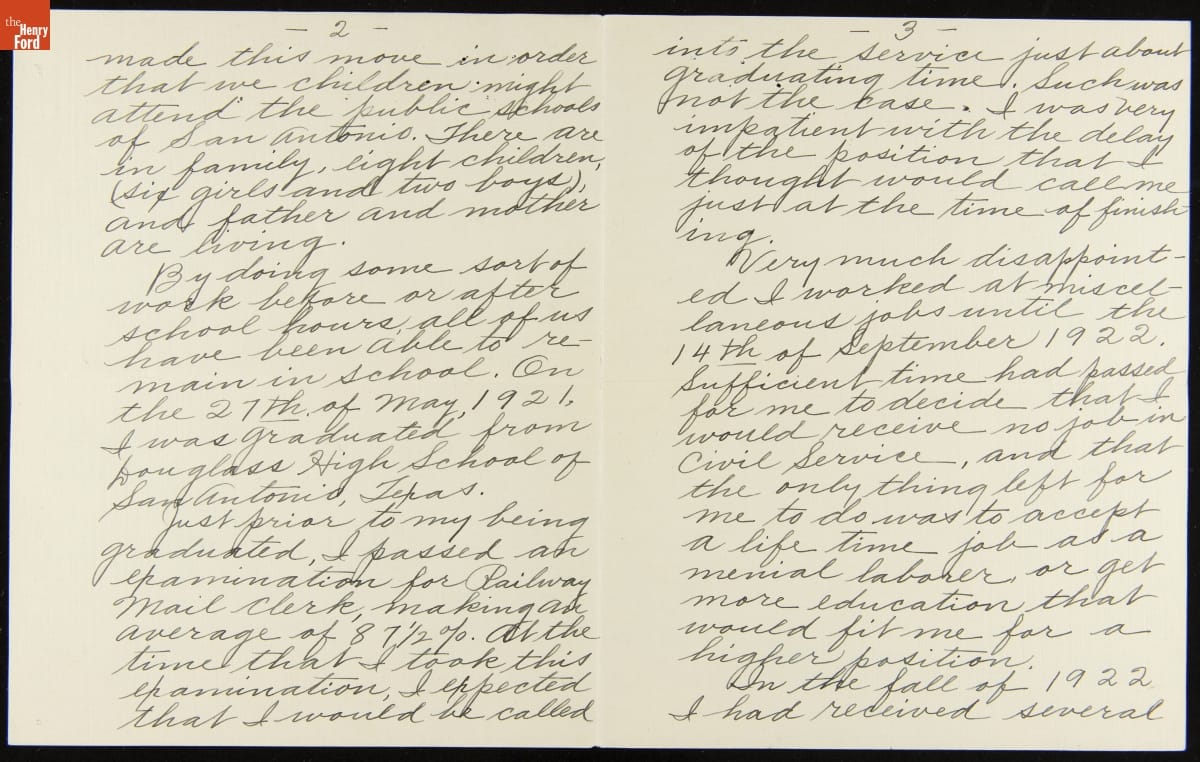 the
Henry
Ford
- 2 -
made this move in order
that we children might
attend the public schools
of San Antonio. There are
in family, eight children,
(six girls and two boys),
and father and mother
are living.
By doing some sort of
work before or after
school hours, all of us
have been able to re-
main in school. On
the 27th. of May, 1921,
I was graduated from
Douglass High School of
San Antonio, Texas.
Just prior to my being
graduated, I passed an
examination for Railway
Mail Clerk, making an
average of 87 1/2 %. At the
time that I took this
examination, I expected
that I would be called
- 3 -
into the service just about
graduating time. Such was
not the case. I was very
impatient with the delay
of the position that I
thought would call me
just at the time of finish-
ing.
Very much disappoint-
ed I worked at miscel-
laneous jobs until the
14th of September 1922.
Sufficient time had passed
for me to decide that I
would receive no job in
Civil Service, and that
the only thing left for
me to do was to accept
a life time job as a
menial laborer, or get
more education that
would fit me for a
higher position.
In the fall of 1922
I had received several